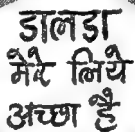 डालडा
मेरे लिये
अच्छा है